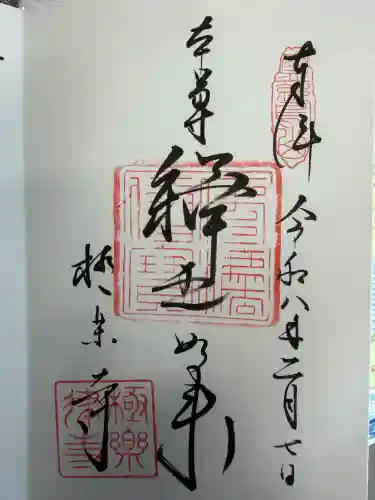 奉拝
令和八年二月七日
本尊
釋迦如来
極楽寺
極樂律寺